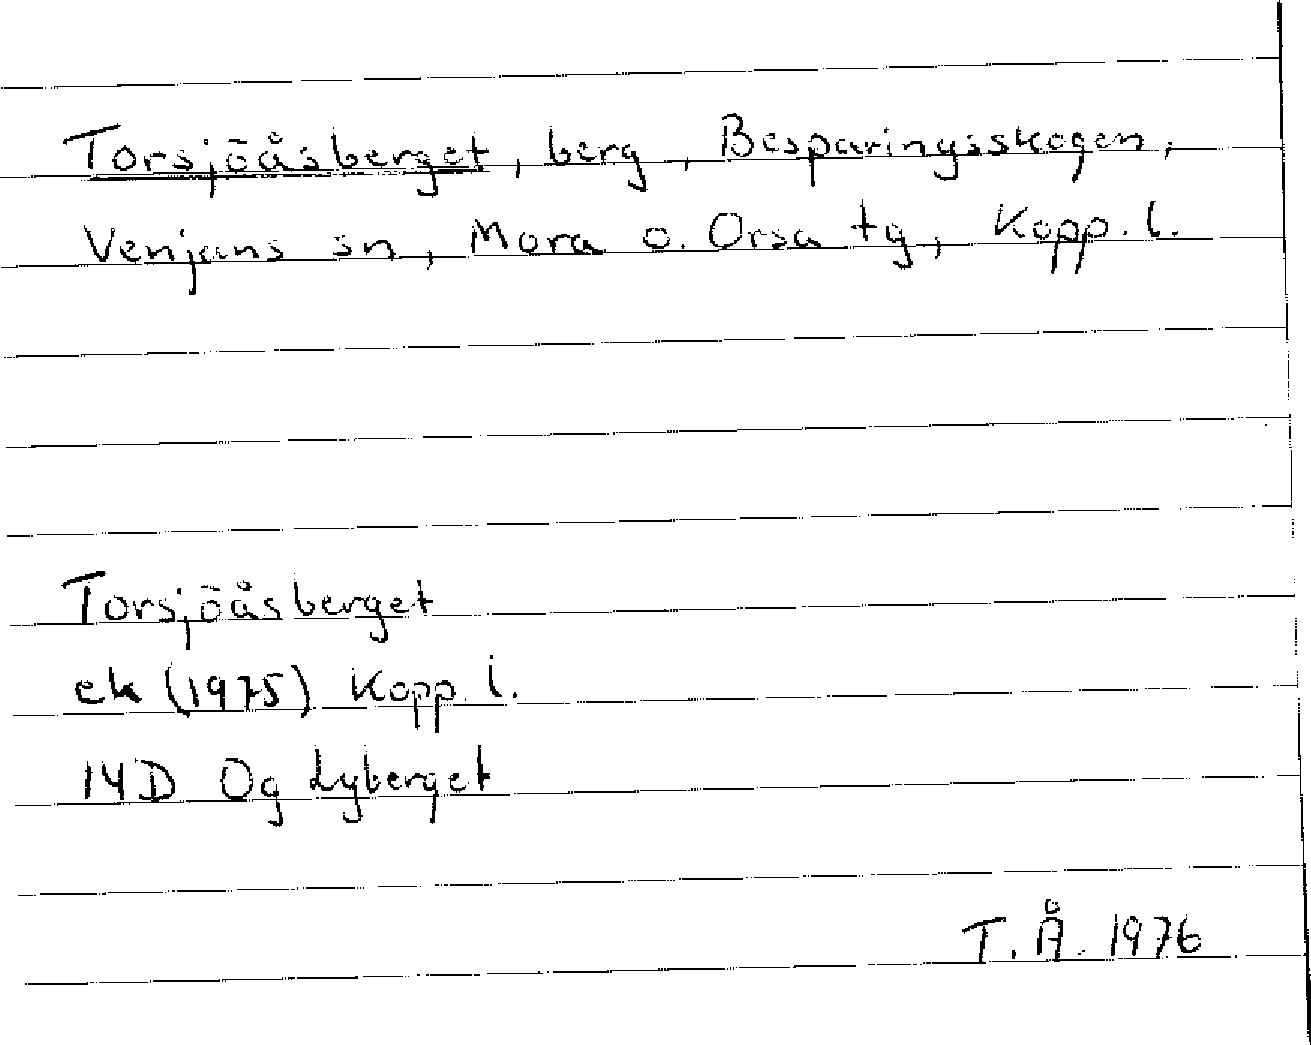 Torsjöåsberget, berg, Besparingsskogen,
Venjans sn, Mora o. Orsa tg, Kopp. l.
Torsjöåsberget
ek (1975) Kopp. l.
14D 0g Lyberget
T. Å. 1976